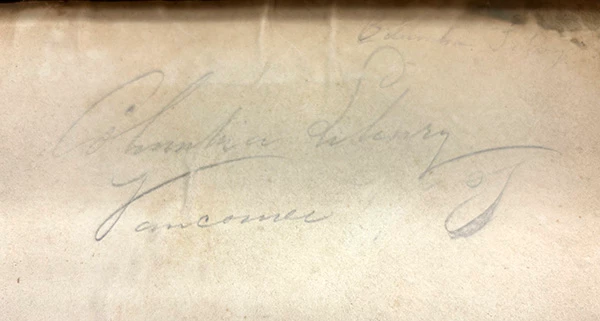 Columbia Library
Columbia Library
Vancouver